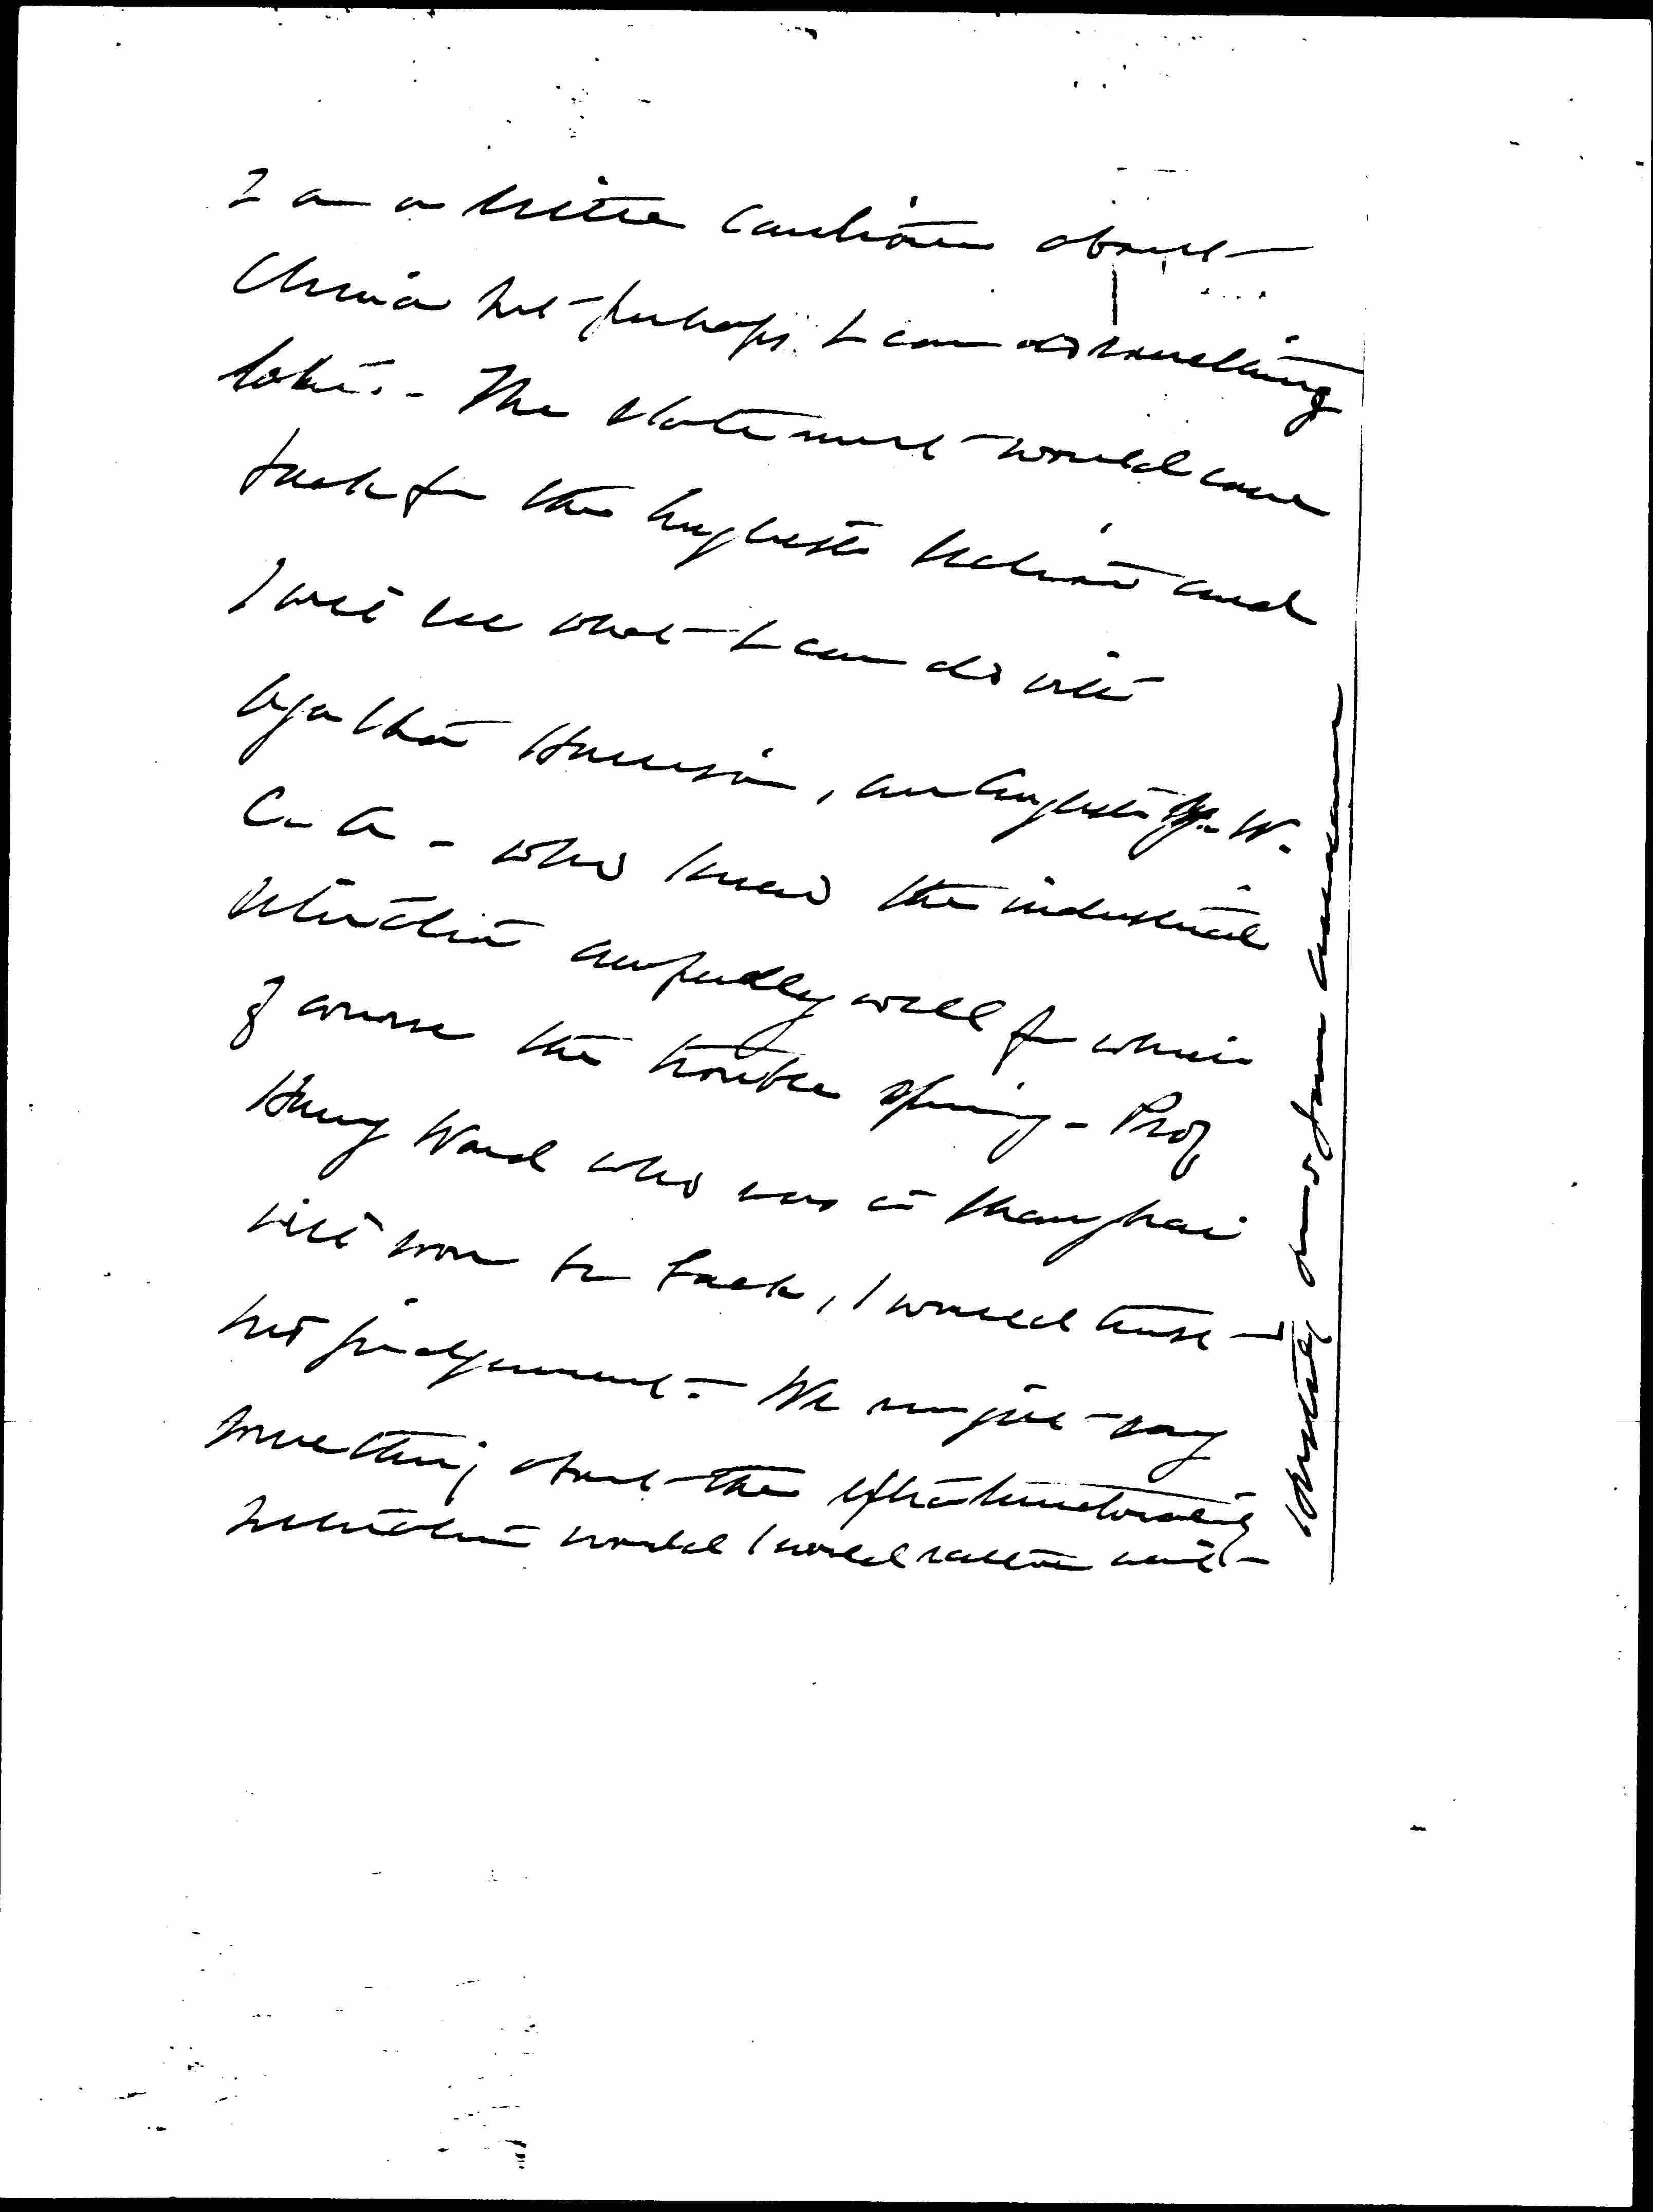 I am a little cautious about
China but perhaps I can do something
later. - The statement would come
back for the English section and
I will see what I can do with
Agatha Harrison, an English Y. W.
C. A - who knew the industrial
situation awfully well from which
of course the trouble spring - Prof
Harry Ward who was in Shanghai
will soon be back, I would trust
his judgement - We might say
something about the extraterritoriality
would I would rather wait -